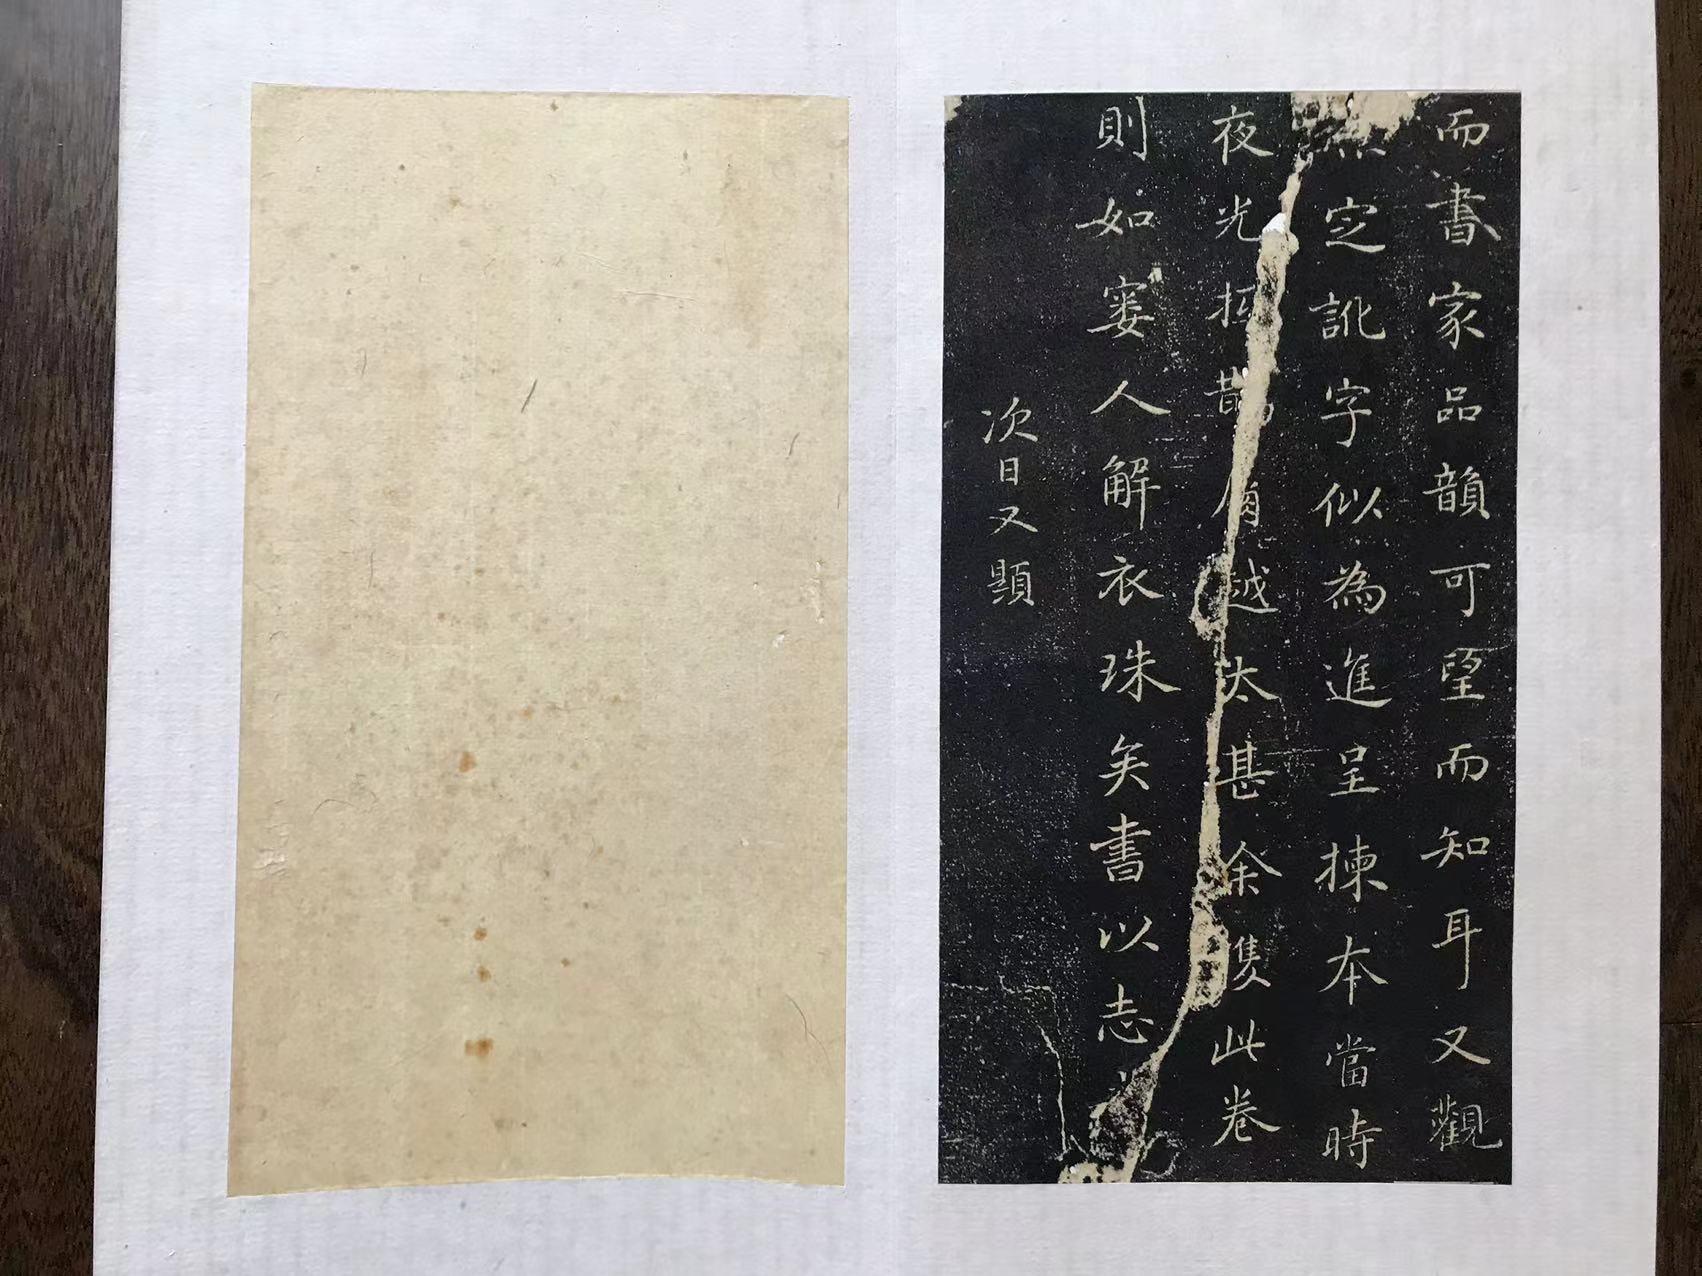 而書家品韻可望而知耳又觀
定訛字似為進呈揀本當時
夜光抵鵲屑越太甚余獲此卷
則如窶人解衣珠矣書以志
次日又題